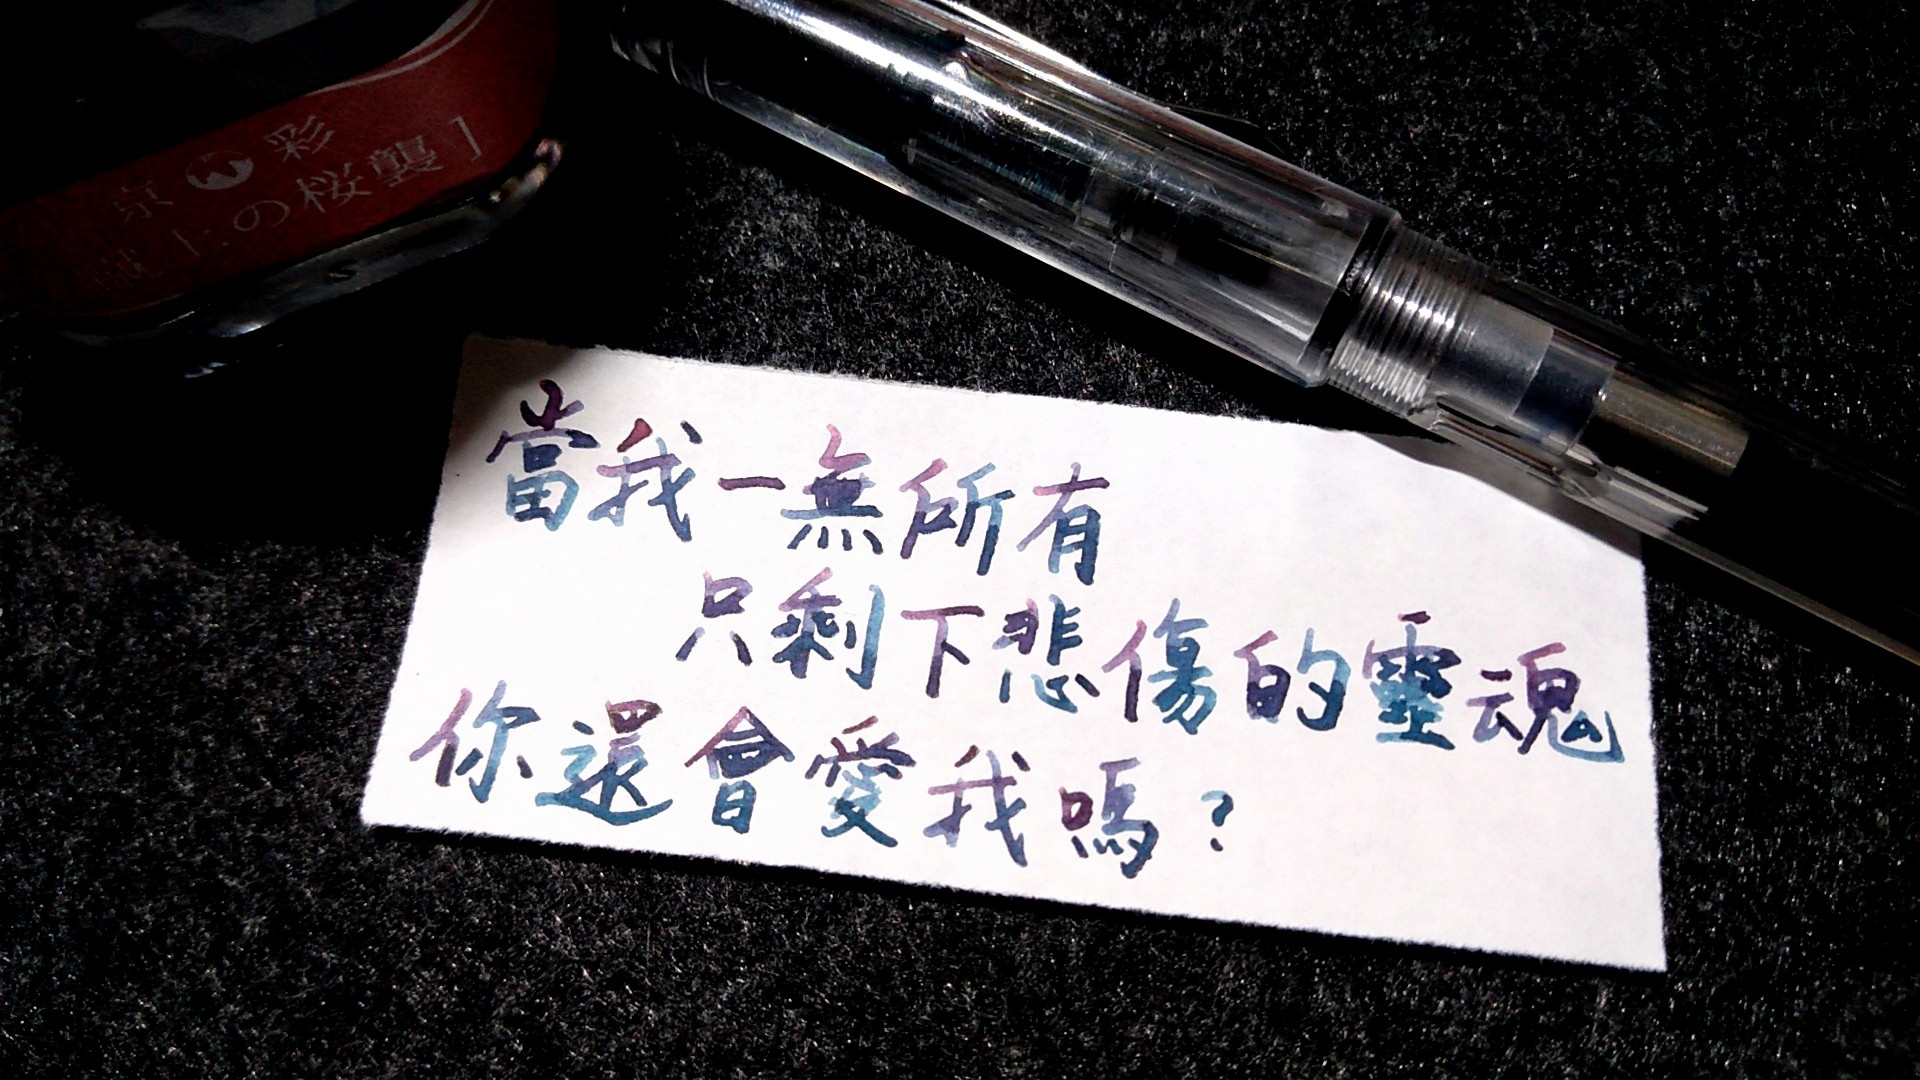 京彩
の桜襲]
當我一無所有
只剩下悲傷的靈魂
你還會愛我嗎？